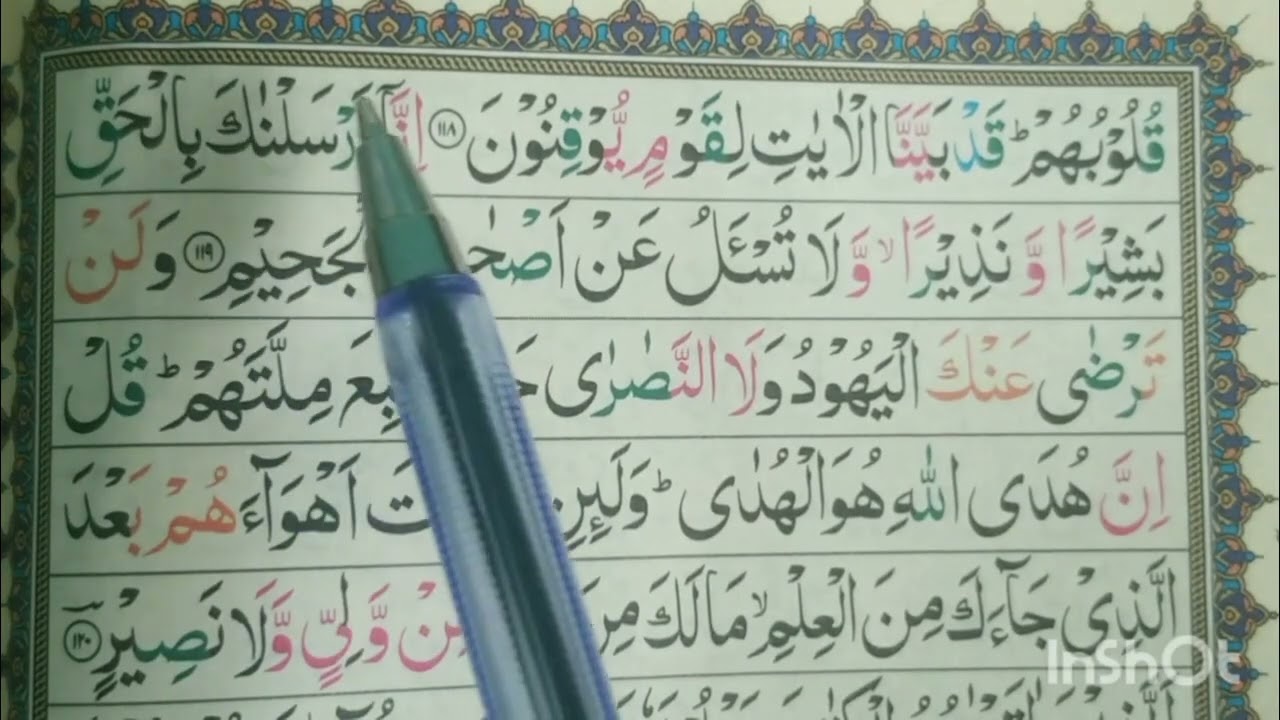 قُلُوْبُهُمْ ؕ قَدْ بَيَّنَّا الْاٰيٰتِ لِقَوْمٍ يُّوْقِنُوْنَ ﴿۱۱۸﴾ اِنَّاۤ اَرْسَلْنٰكَ بِالْحَقِّ
بَشِيْرًا وَّ نَذِيْرًا ۙ وَّ لَا تُسْـَٔلُ عَنْ اَصْحٰبِ الْجَحِيْمِ ﴿۱۱۹﴾ وَ لَنْ
تَرْضٰى عَنْكَ الْيَهُوْدُ وَلَا النَّصٰرٰى مِلَّتَهُمْ ؕ قُلْ
اِنَّ هُدَى اللّٰهِ هُوَ الْهُدٰى ؕ وَلَئِنِ اَهْوَآءَهُمْ بَعْدَ
الَّذِىْ جَآءَكَ مِنَ الْعِلْمِ ۙ مَا لَكَ مِنَ مِنْ وَّلِىٍّ وَّلَا نَصِيْرٍ ﴿۱۲۰﴾
InShOt